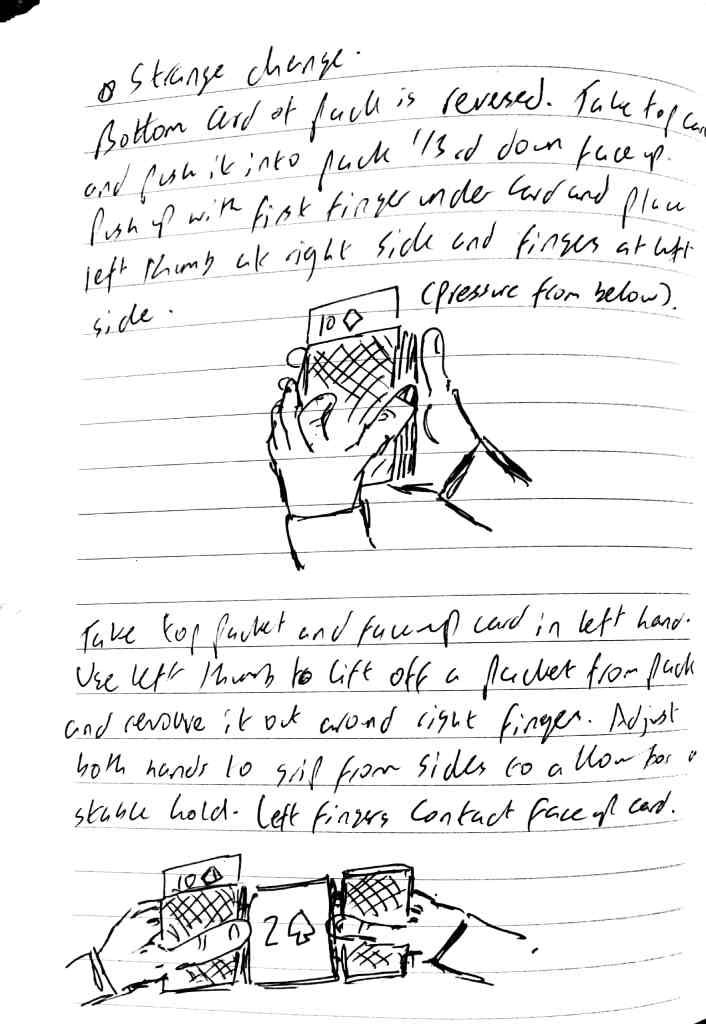 Strange change.
Bottom card of pack is reversed. Take top card
and push it into pack 1/3rd down face up.
Push up with first finger under card and place
left thumb at right side and fingers at left
side. (pressure from below).
10 ♢
Take top packet and face-up card in left hand.
Use left thumb to lift off a packet from pack
and revolve it out around right finger. Adjust
both hands to grip from sides to allow for a
stable hold. Left fingers contact face up card.
10 ♢
2 ♤